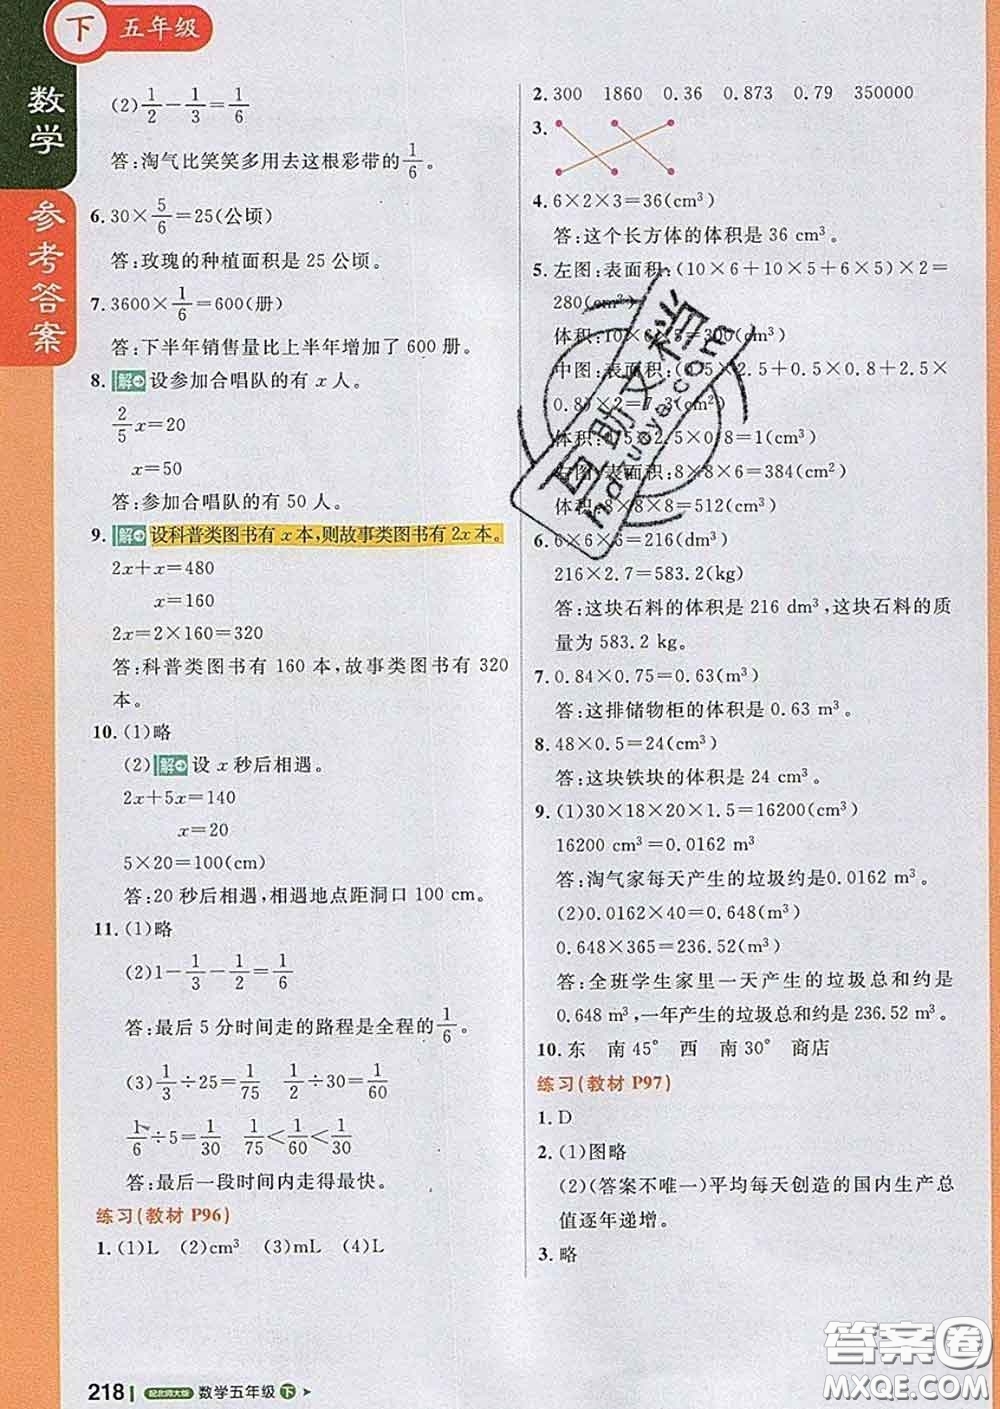 下 五年级
数学
参考答案
(2)1/2-1/3=1/6
答:淘气比笑笑多用去这根彩带的1/6。
6. 30×5/6=25(公顷)
答:玫瑰的种植面积是25公顷。
7. 3600×1/6=600(册)
答:下半年销售量比上半年增加了600册。
8. 解 设参加合唱队的有x人。
2/5x=20
x=50
答:参加合唱队的有50人。
9. 解 设科普类图书有x本,则故事类图书有2x本。
2x+x=480
x=160
2x=2×160=320
答:科普类图书有160本,故事类图书有320
本。
10. (1)略
(2)解 设x秒后相遇。
2x+5x=140
x=20
5×20=100(cm)
答:20秒后相遇,相遇地点距洞口100 cm。
11. (1)略
(2)1-1/3-1/2=1/6
答:最后5分时间走的路程是全程的1/6。
(3)1/3÷25=1/75 1/2÷30=1/60
1/6÷5=1/30 1/75<1/60<1/30
答:最后一段时间内走得最快。
练习(教材 P96)
1. (1)L (2)cm³ (3)mL (4)L
2. 300 1860 0.36 0.873 0.79 350000
3.
4. 6×2×3=36(cm³)
答:这个长方体的体积是36 cm³。
5. 左图:表面积:(10×6+10×5+6×5)×2=
280(cm²)
体积:10×6×5=300(cm³)
中图:表面积:(×2.5+0.5×0.8+2.5×
0.8)×2=7.3(cm²)
体积:×2.5×0.8=1(cm³)
右图:表面积:8×8×6=384(cm²)
体积:8×8×8=512(cm³)
6. 6×6×6=216(dm³)
216×2.7=583.2(kg)
答:这块石料的体积是216 dm³,这块石料的质
量为583.2 kg。
7. 0.84×0.75=0.63(m³)
答:这排储物柜的体积是0.63 m³。
8. 48×0.5=24(cm³)
答:这块铁块的体积是24 cm³。
9. (1)30×18×20×1.5=16200(cm³)
16200 cm³=0.0162 m³
答:淘气家每天产生的垃圾约是0.0162 m³。
(2)0.0162×40=0.648(m³)
0.648×365=236.52(m³)
答:全班学生家里一天产生的垃圾总和约是
0.648 m³,一年产生的垃圾总和约是236.52 m³。
10. 东 南45° 西 南30° 商店
练习(教材 P97)
1. D
2. (1)图略
(2)(答案不唯一)平均每天创造的国内生产总
值逐年递增。
3. 略
218 配北师大版 数学五年级 下
互助文档
hdzuoye.com
答案圈
MXQE.COM